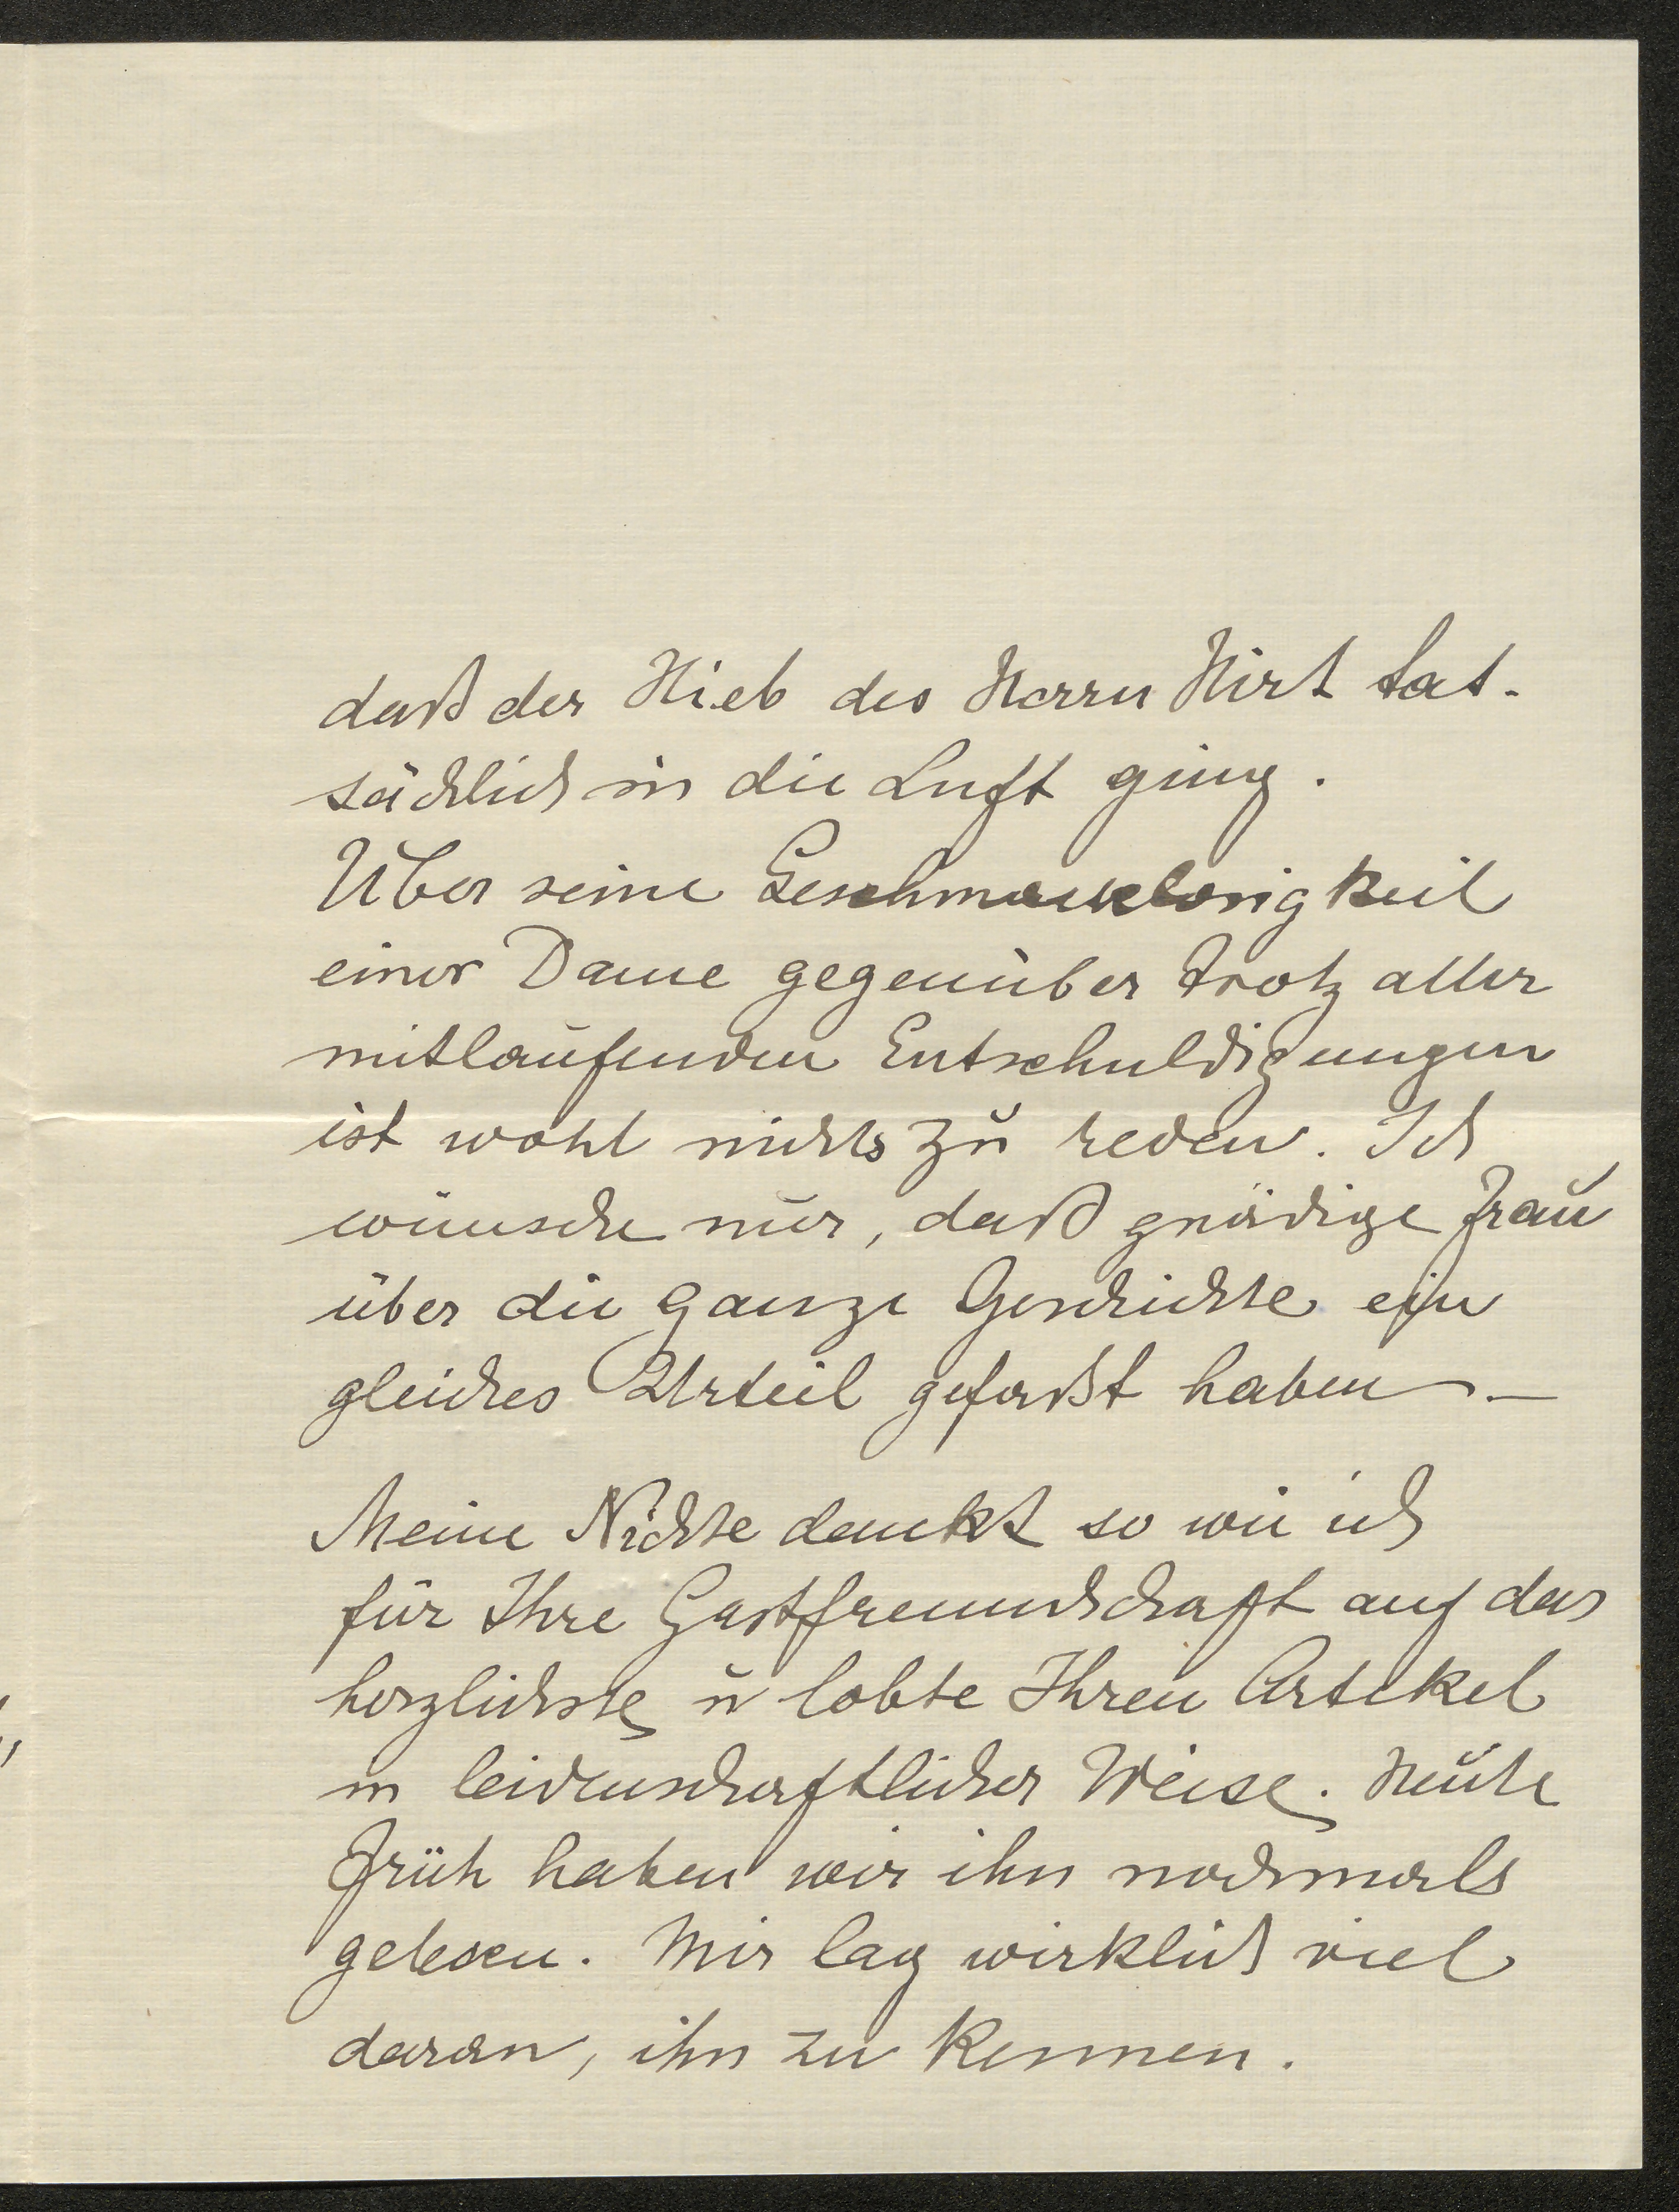 daß der Hieb des Herrn Hirt tat-
sächlich in die Luft ging.
Über seine Geschmacklosigkeit
einer Dame gegenüber trotz aller
mitlaufenden Entschuldigungen
ist wohl nichts zu reden. Ich
wünsche nur, daß gnädige Frau
über die ganze Geschichte ein
gleiches Urteil gefaßt haben. —
Meine Nichte dankt so wie ich
für Ihre Gastfreundschaft auf das
herzlichste u lobte Ihren Artikel
in leidenschaftlicher Weise. Heute
Früh haben wir ihn nochmals
gelesen. Mir lag wirklich viel
daran, ihn zu kennen.